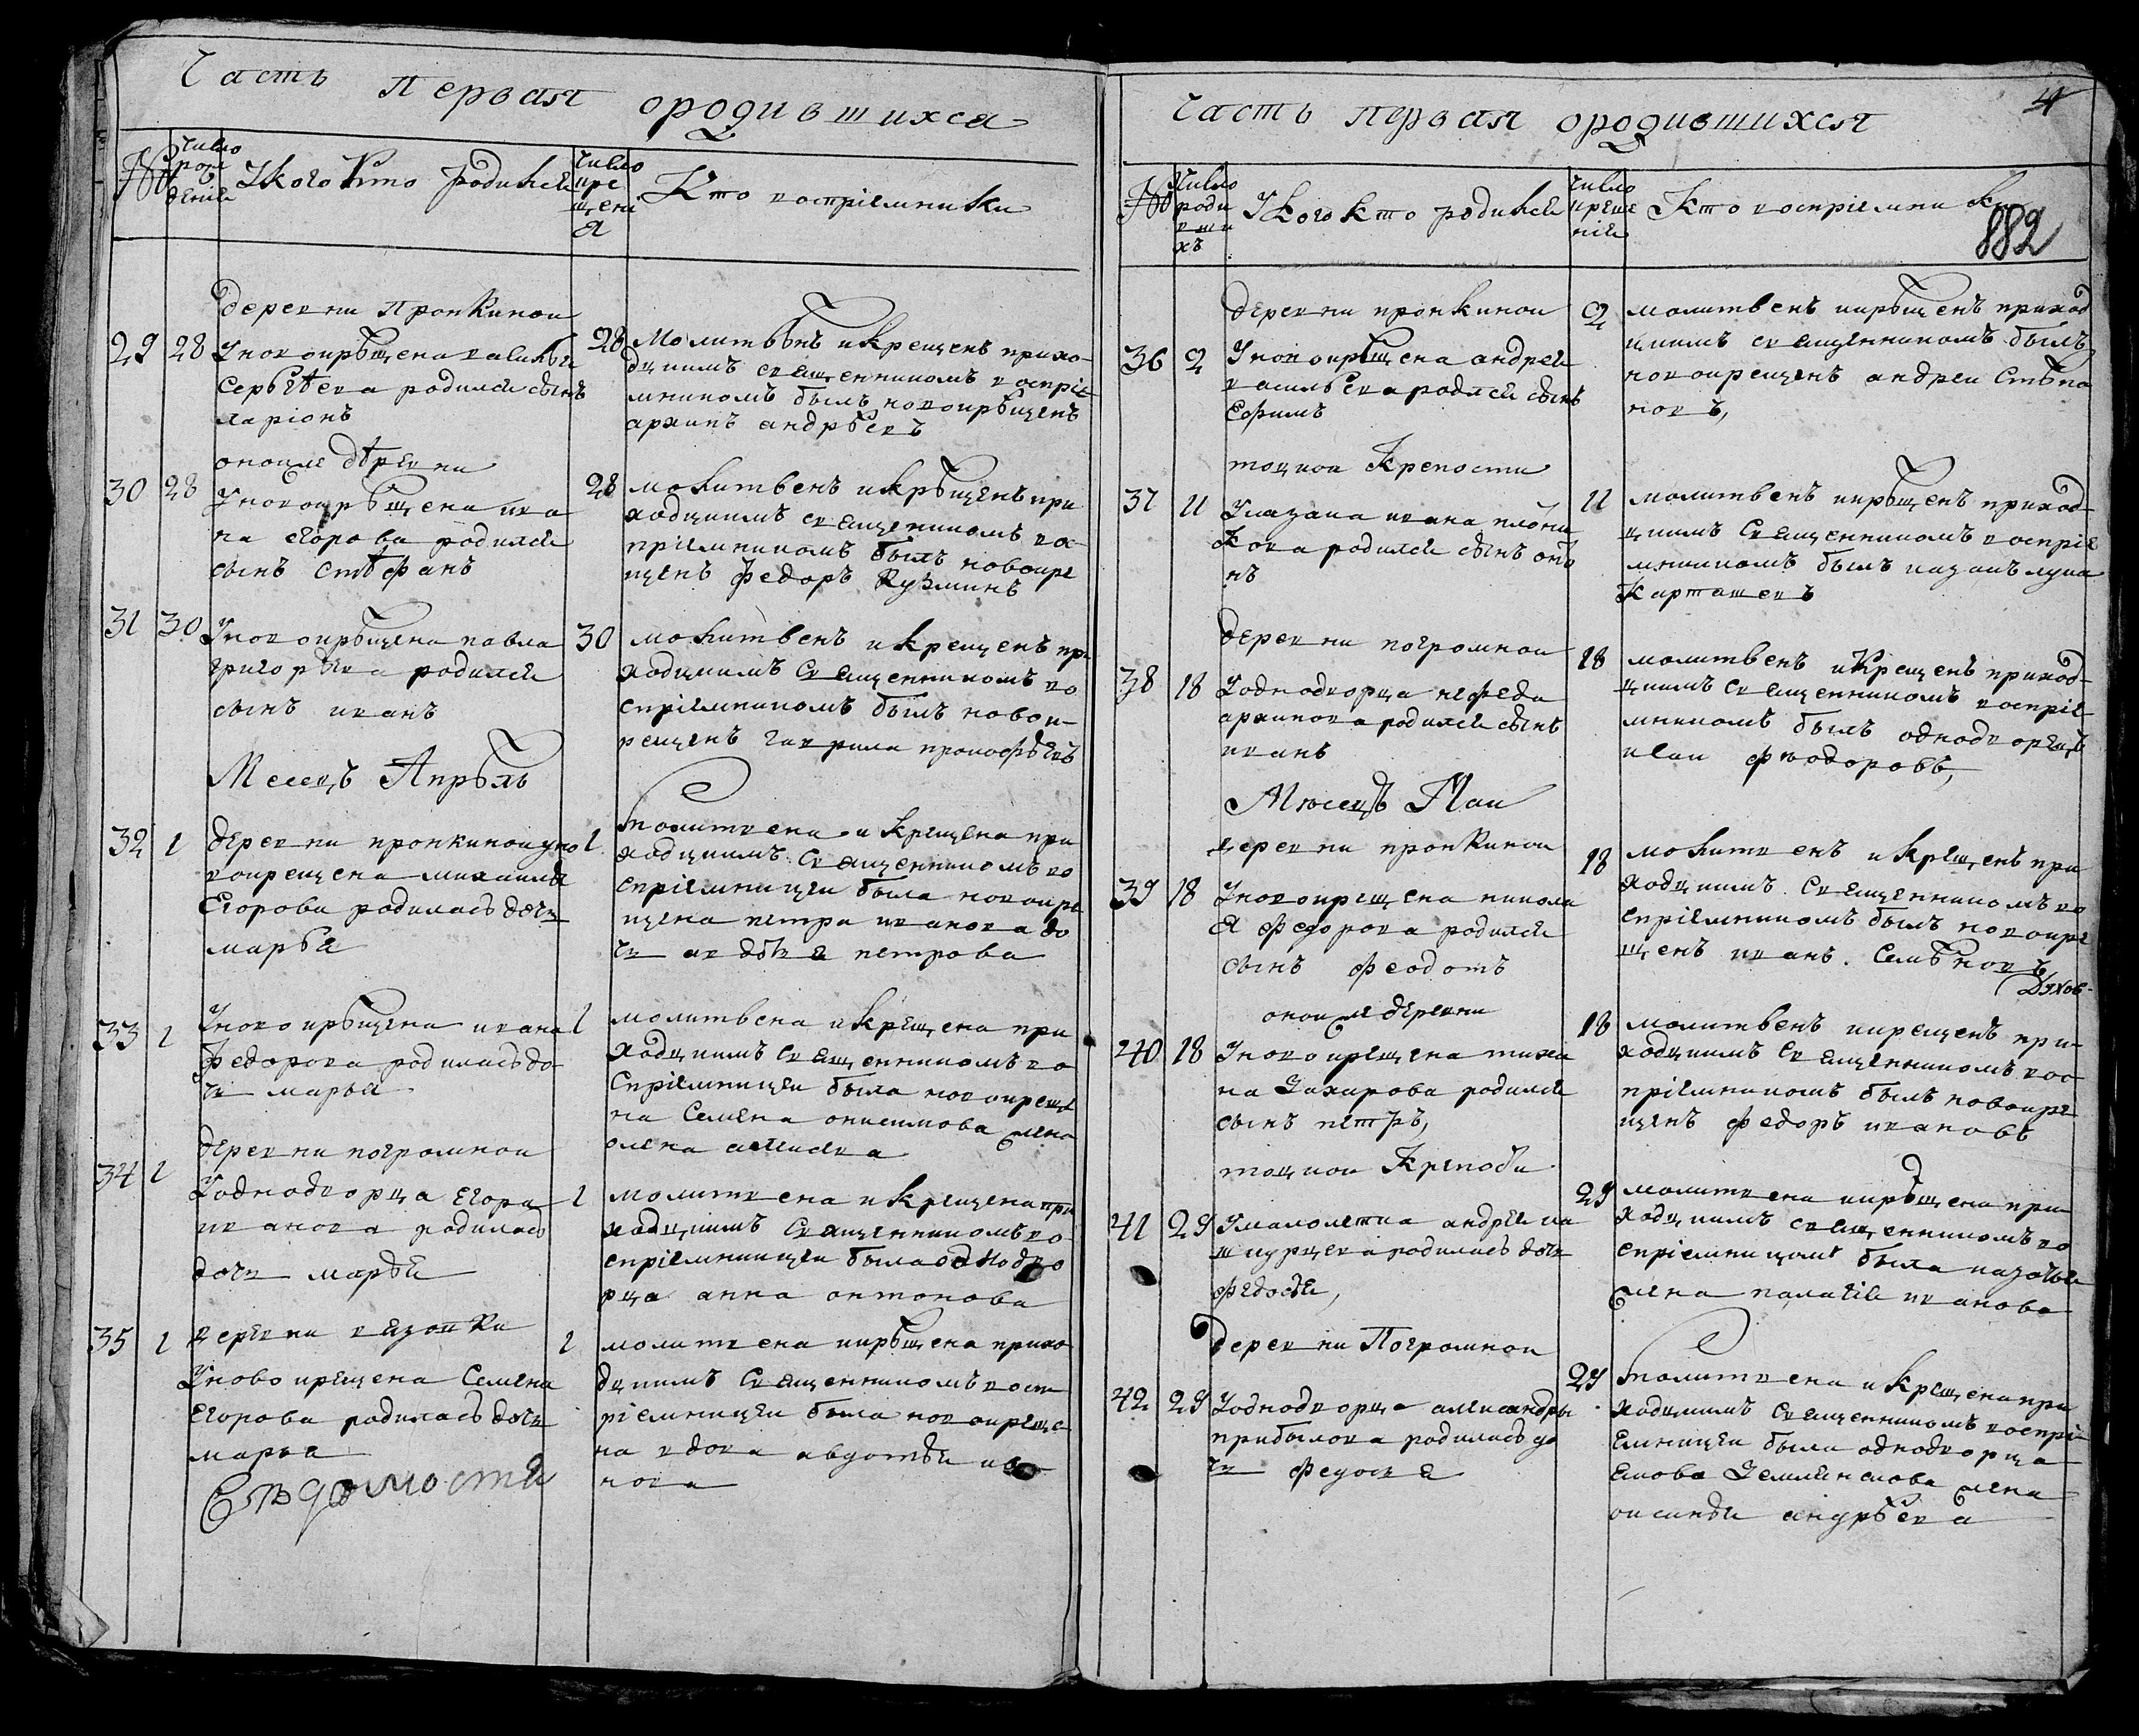 Часть первая ородившихся
№ число рождения
Укого кто родился
число крещения
Кто восприемники
деревни Пронкинои
29 28 Уновокрѣщена
Сергѣева родился сынъ
ларіонъ
28 Молитвѣнъ и крещенъ прихо-
дцкимъ священникомъ воспріе
мникомъ былъ новокрѣщенъ
архипъ андрѣевъ
оноиже деревни
30 28 Уновокрѣщена ива
на егорова родился
сынъ стефанъ
28 молитвенъ и крѣщенъ при
ходцкимъ священникомъ вос
пріемникомъ былъ новокре
щенъ Федоръ Кузминъ
31 30 Уновокрѣщена павла
григорьева родился
сынъ иванъ
30 молитвенъ и крещенъ при
ходцкимъ священникомъ во
спріемникомъ былъ новок
рещенъ гаврила прокофьевъ
Месецъ Апрѣль
32 1 деревни пронкинои уно
вокрещена михаила
Егорова родилась дочь
марья
1 молитвена и крещена при
ходцкимъ священникомъ во
спріемницеи была новокре
щена петра иванова до
чь авдотья петрова
33 1 Уновокрѣщена ивана
федорова родилась до
чь марья
1 молитвена и крещена при
ходцкимъ священникомъ во
спріемницеи была новокреще
на Семена онисимова жена
олена алексѣева
деревни погромнои
34 1 Уоднодворца егора
иванова родилась
дочь марья
1 молитвена и крещена при
ходцкимъ священникомъ во
спріемницеи была однодво
рца анна онтонова
деревни вязовки
35 1 Уновокрещена Семена
Егорова родилась дочь
марья
1 молитвена и крѣщена прихо
дцкимъ священникомъ восп
ріемницеи была новокреще
на вдова авдотья ива
нова
Часть первая ородившихся
4
№ число родившихъ
Укого кто родился
число крещения
Кто восприемники
882
деревни пронкинои
36 2 Уновокрещена андрея
васильева родился сынъ
Ефимъ
2 молитвенъ и крѣщенъ приход
цкимъ священникомъ былъ
новокрещенъ андреи Стѣпа
новъ,
тоцкои Крепости
37 11 Указака ивана
родился сынъ
11 молитвенъ и крѣщенъ приход
цкимъ священникомъ воспріе
мникомъ былъ казакъ лука
Карташевъ
деревни погромнои
38 18 Уоднодворца нефеда
архипова родился сынъ
иванъ
18 молитвенъ и крещенъ приход
цкимъ священникомъ воспріе
мникомъ былъ однодворецъ
исаи фьодоровъ,
Месецъ Маи
деревни пронкинои
39 18 Уновокрещена никола
я федорова родился
сынъ феодотъ
18 молитвенъ и крещенъ при
ходцкимъ священникомъ во
спріемникомъ былъ новокре
щенъ иванъ Семѣновъ
оноиже деревни
40 18 Уновокрещена тиха
на Захарова родился
сынъ петръ,
18 молитвенъ и крещенъ при-
ходцкимъ священникомъ вос
пріемникомъ былъ новокре
щенъ федоръ ивановъ
тоцкои Крепости
41 29 Умалолетка андрея ка
шкурцева родилась дочь
федосья,
29 молитвена и крѣщена при
ходцкимъ священникомъ во
спріемницомъ была казачья
жена палагѣя иванова
деревни Погромнои
42 29 Уоднодворца александры
прибылова родилась до
чь федосья
29 молитвена и крещена при
ходцкимъ священникомъ воспрі
емницеи была однодворца
Якова Землянскова жена
оксинья андрѣева